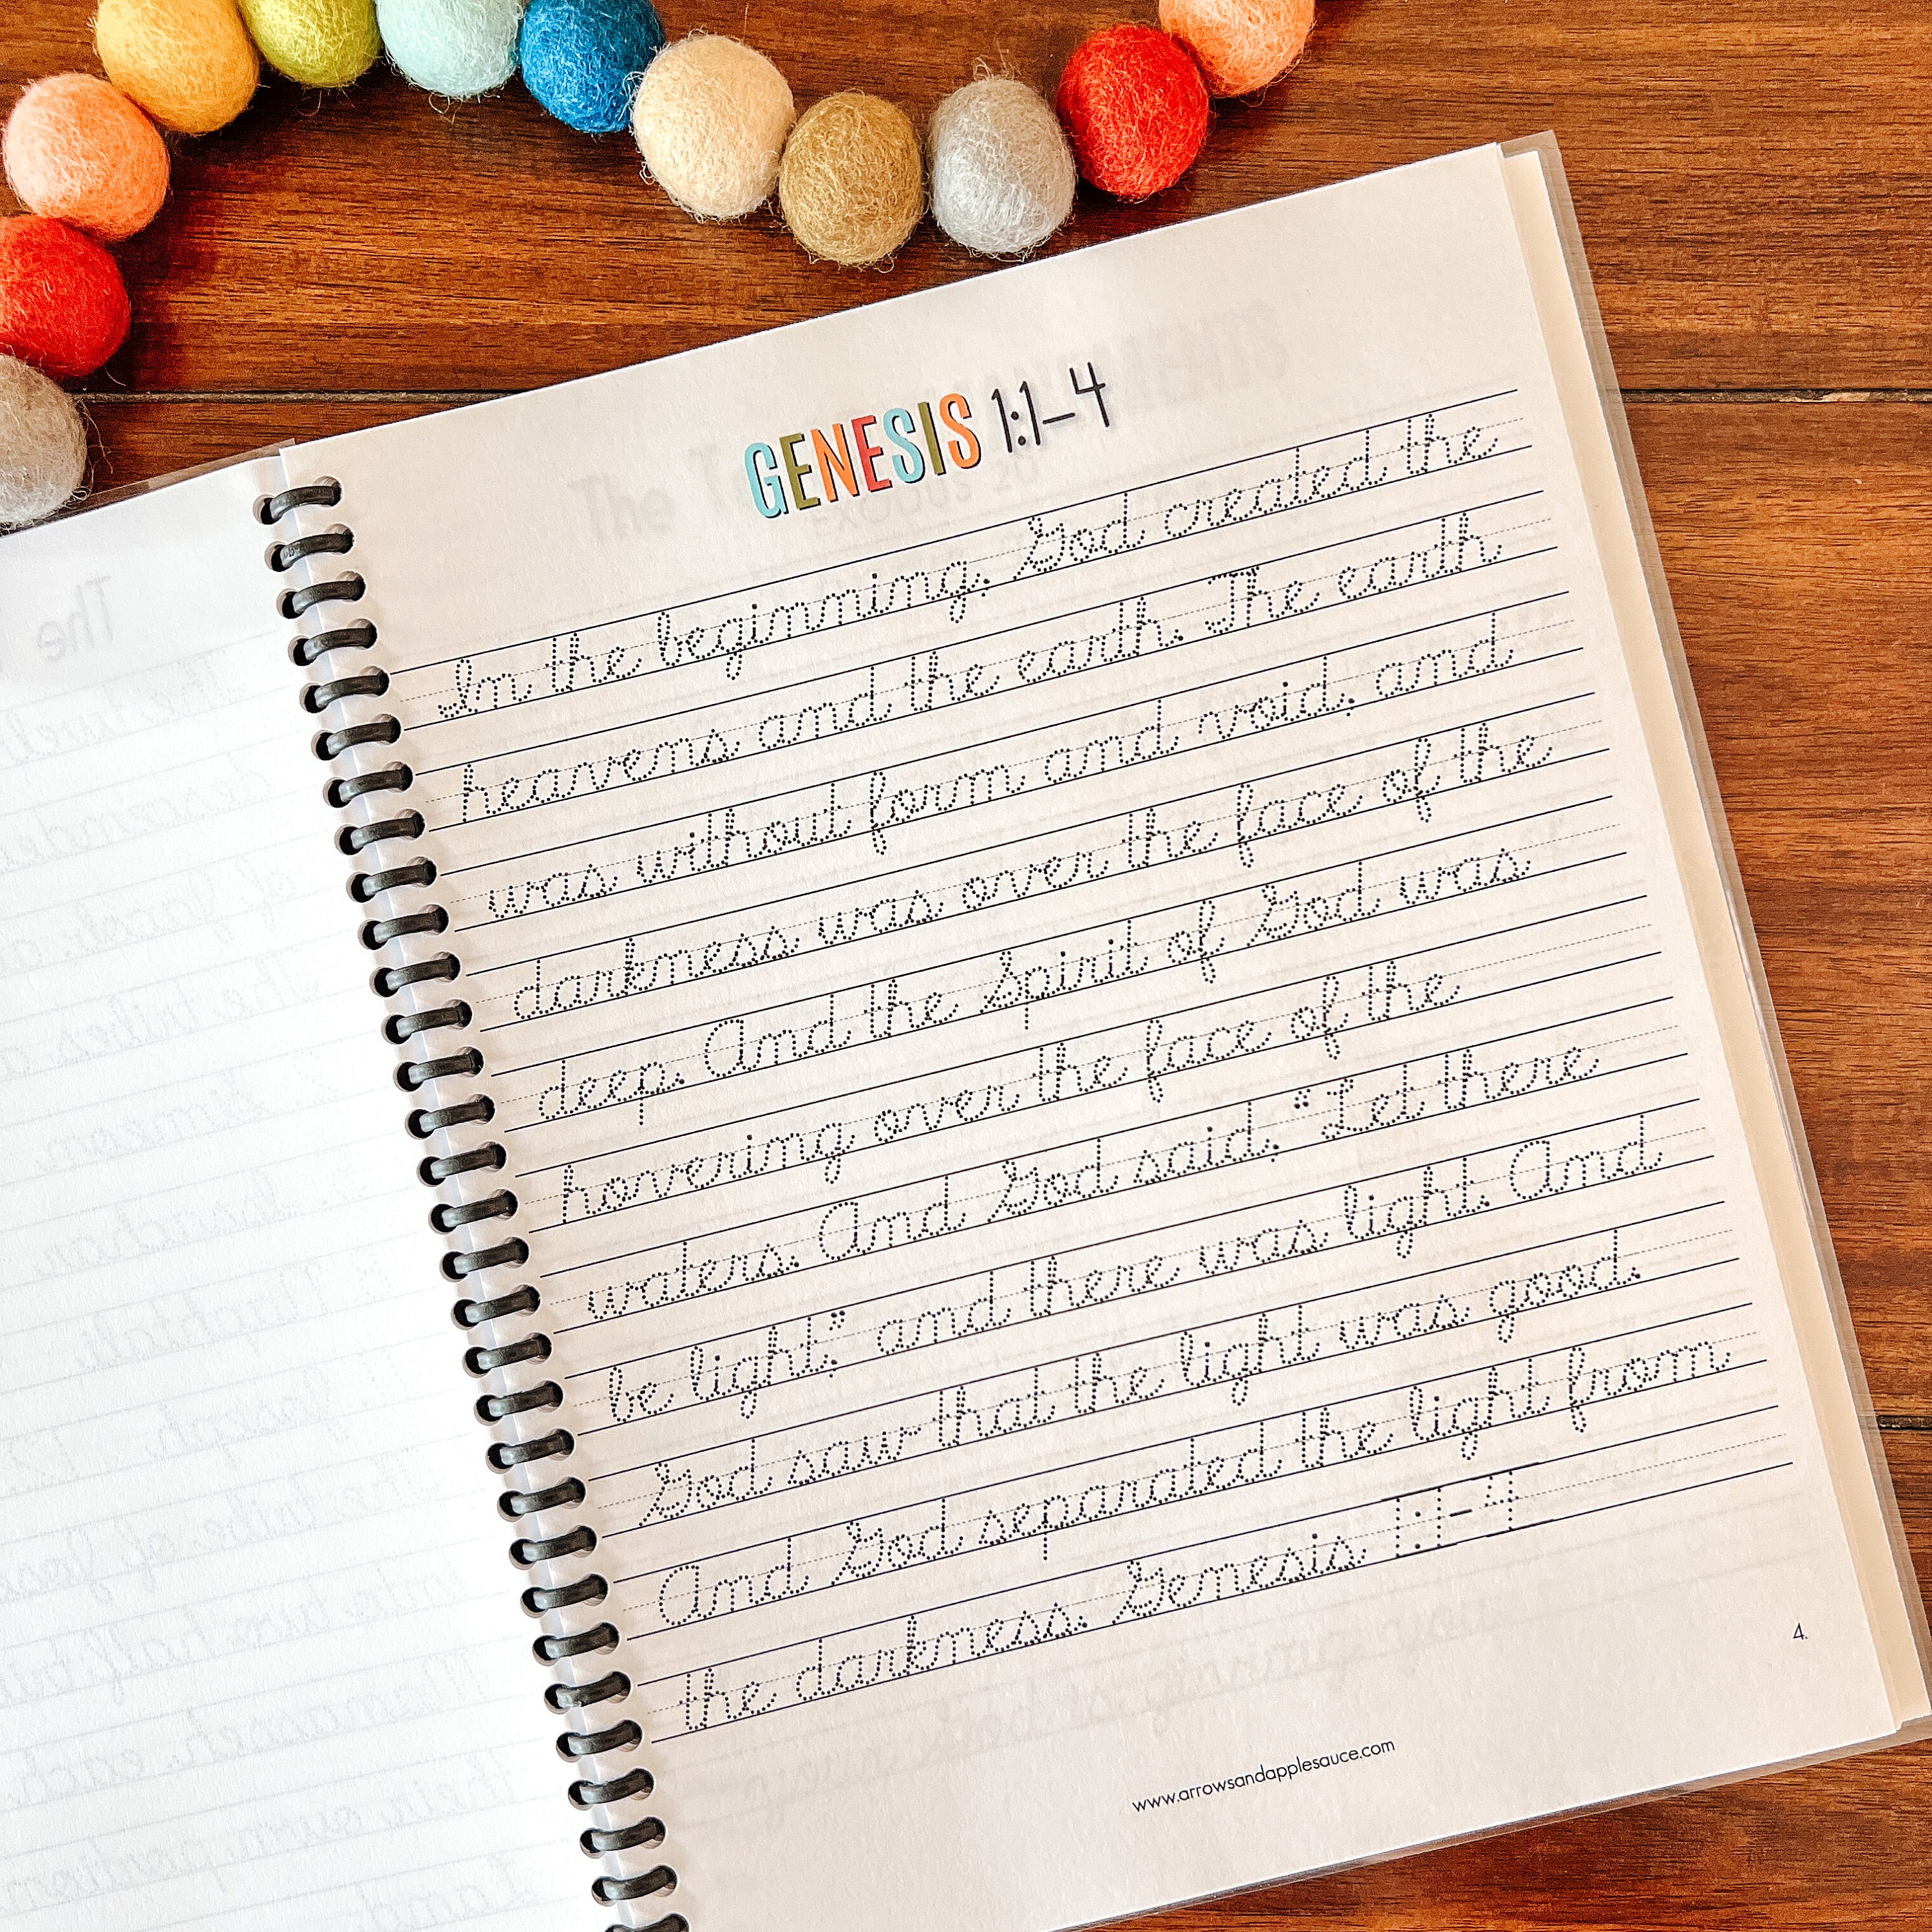 GENESIS 1:1-4
In the beginning, God created the
heavens and the earth. The earth
was without form and void, and
darkness was over the face of the
deep. And the Spirit of God was
hovering over the face of the
waters. And God said, "Let there
be light," and there was light. And
God saw that the light was good.
And God separated the light from
the darkness. Genesis 1:1-4
4.
www.arrowsandapplesauce.com